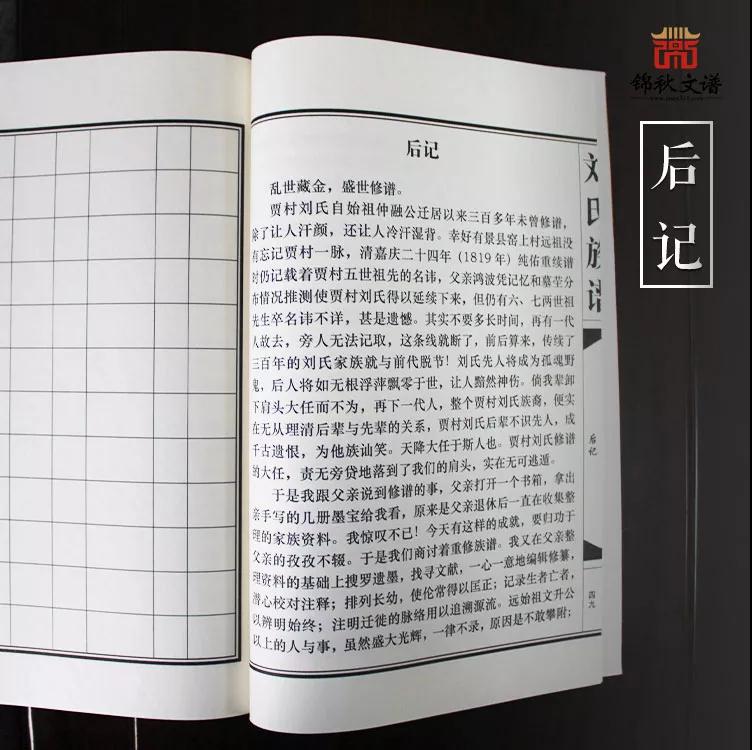 锦秋文谱
后记
后记
乱世藏金，盛世修谱。
贾村刘氏自始祖仲融公迁居以来三百多年未曾修谱，
除了让人汗颜，还让人冷汗湿背。幸好有景县窑上村远祖没
有忘记贾村一脉，清嘉庆二十四年（1819年）纯佑重续谱
时仍记载着贾村五世祖先的名讳，父亲鸿波凭记忆和墓茔分
布情况推测使贾村刘氏得以延续下来，但仍有六、七两世祖
先生卒名讳不详，甚是遗憾。其实不要多长时间，再有一代
人故去，旁人无法记取，这条线就断了，前后算来，传续了
三百年的刘氏家族就与前代脱节！刘氏先人将成为孤魂野
鬼，后人将如无根浮萍飘零于世，让人黯然神伤。倘我辈卸
下肩头大任而不为，再下一代人，整个贾村刘氏族裔，便实
在无从理清后辈与先辈的关系，贾村刘氏后辈不识先人，成
千古遗恨，为他族讪笑。天降大任于斯人也。贾村刘氏修谱
的大任，责无旁贷地落到了我们的肩头，实在无可逃遁。
于是我跟父亲说到修谱的事，父亲打开一个书箱，拿出
亲手写的几册墨宝给我看，原来是父亲退休后一直在收集整
理的家族资料。我惊叹不已！今天有这样的成就，要归功于
父亲的孜孜不辍。于是我们商讨着重修族谱。我又在父亲整
理资料的基础上搜罗遗墨，找寻文献，一心一意地编辑修纂，
潜心校对注释；排列长幼，使伦常得以匡正；记录生者亡者，
以辨明始终；注明迁徙的脉络用以追溯源流。远始祖文升公
以上的人与事，虽然盛大光辉，一律不录，原因是不敢攀附；
氏族谱
后记
四九